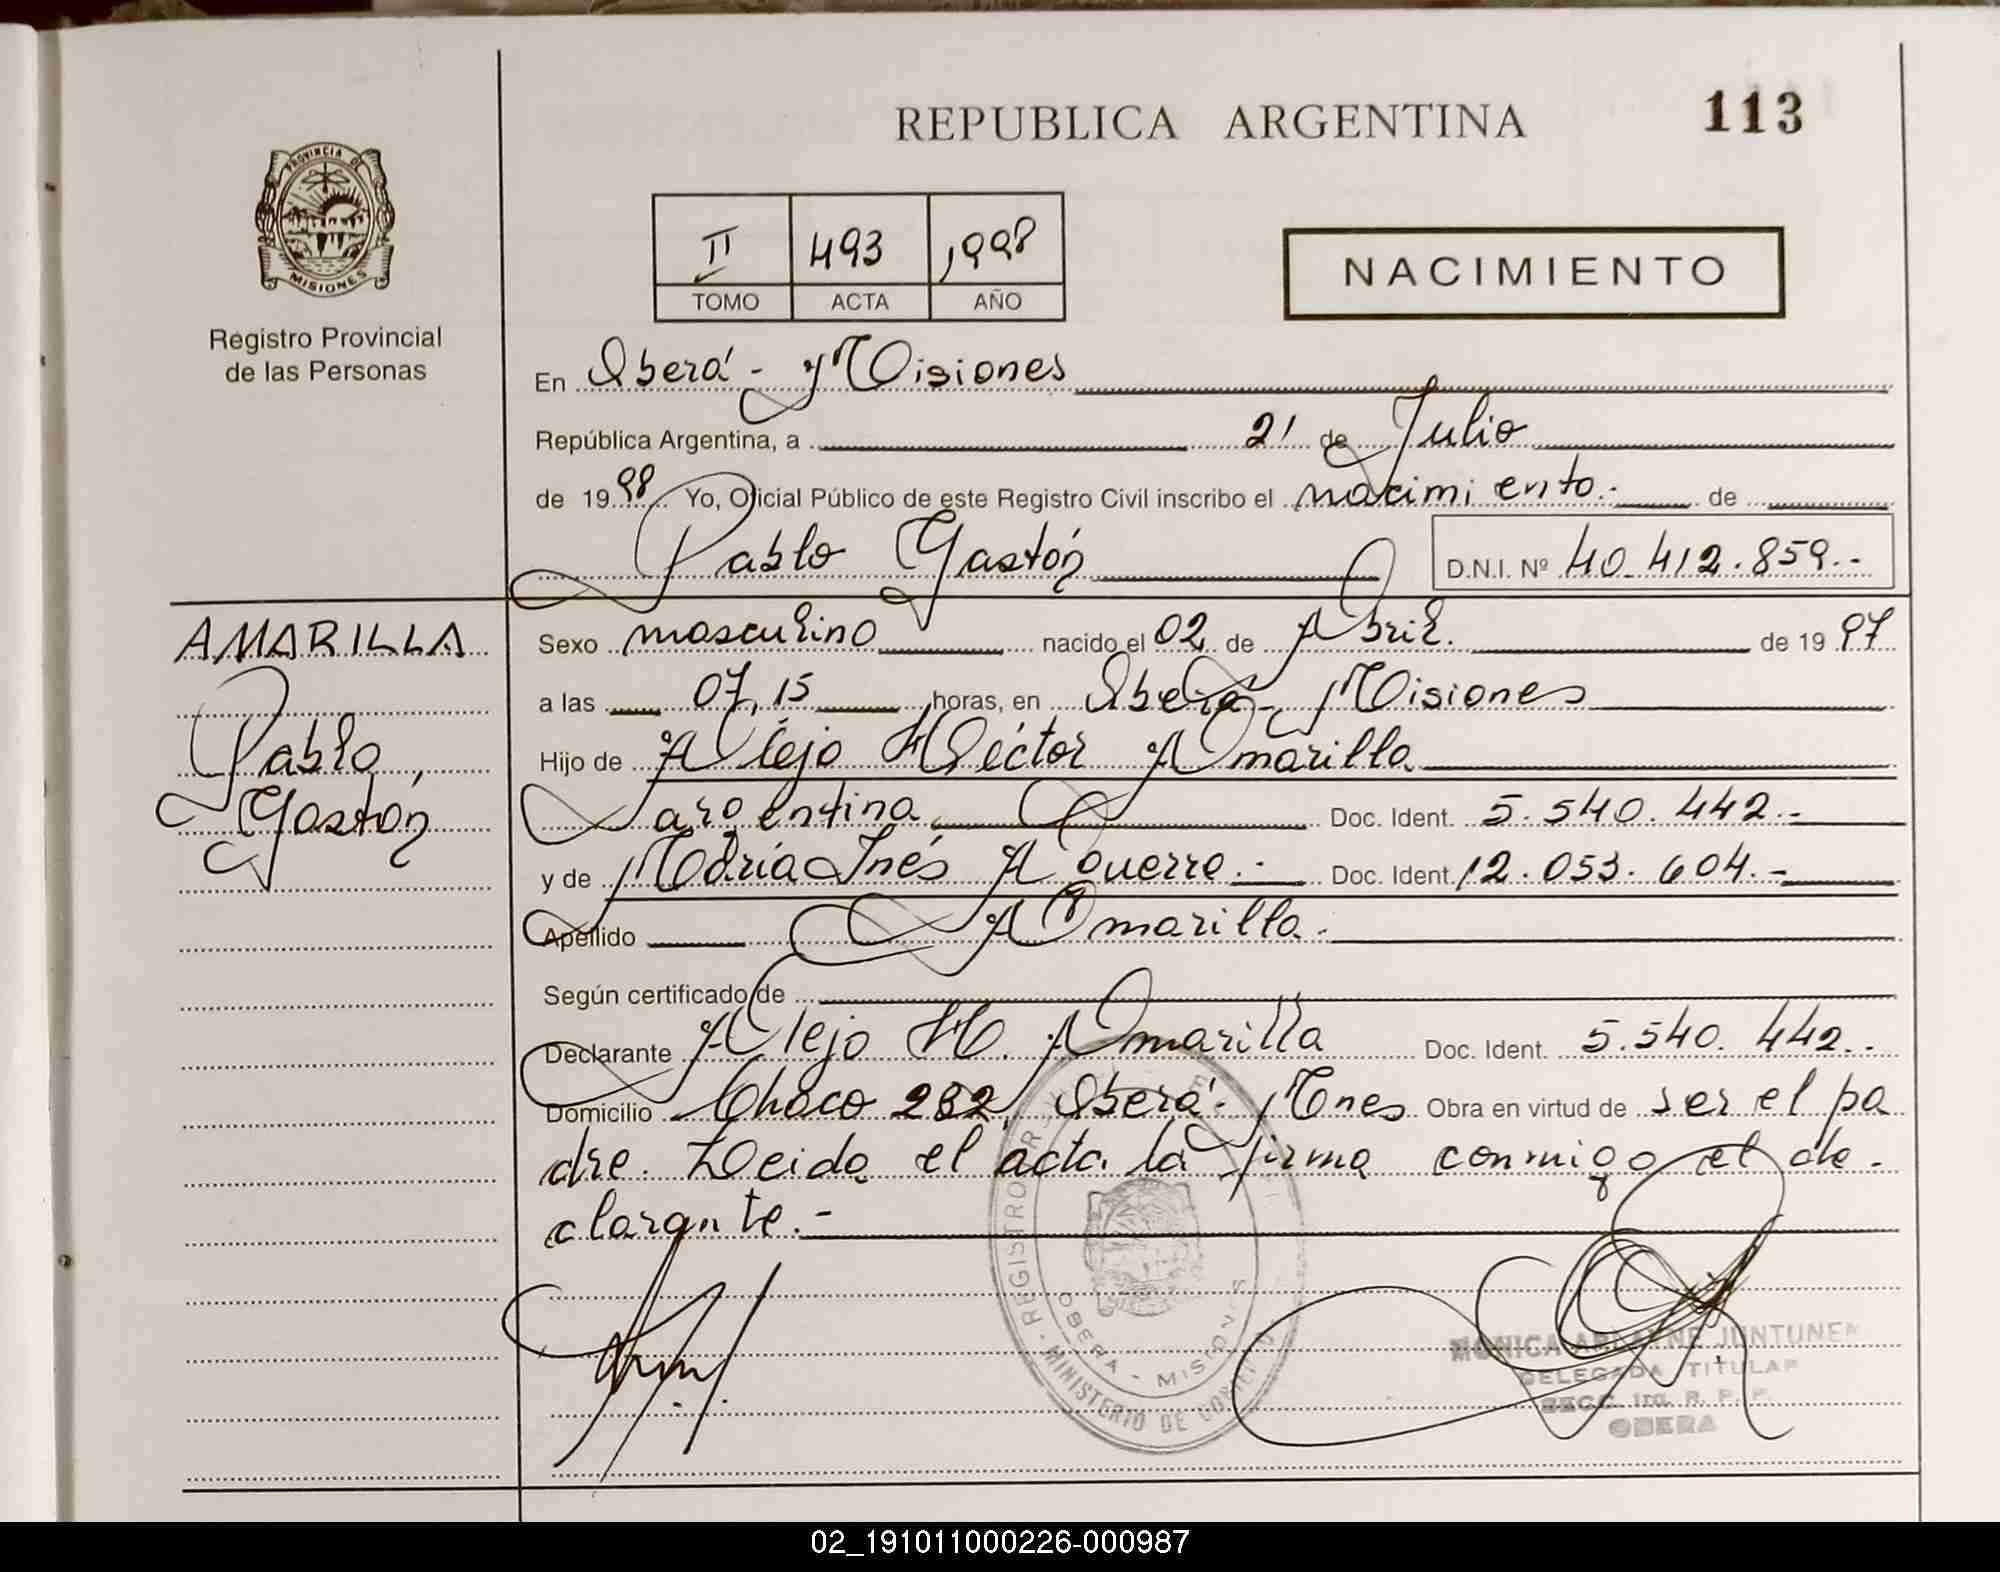 REPUBLICA ARGENTINA
113
PROVINCIA DE
MISIONES
Registro Provincial
de las Personas
II 493 1998
TOMO ACTA AÑO
NACIMIENTO
En Oberá - Misiones
República Argentina, a 21 de Julio
de 1998 Yo, Oficial Público de este Registro Civil inscribo el nacimiento.- de
Pablo Gastón D.N.I. Nº 40.412.859.-
AMARILLA
Pablo,
Gastón
Sexo masculino nacido el 02 de Abril. de 1997
a las 07,15 horas, en Oberá - Misiones
Hijo de Alejo Héctor Amarilla
argentina. Doc. Ident. 5.540.442.-
y de María Inés Aguerre.- Doc. Ident. 12.053.604.-
Apellido Amarilla.-
Según certificado de
Declarante Alejo H. Amarilla Doc. Ident. 5.540.442.-
Domicilio Chaco 282, Oberá - Mnes Obra en virtud de ser el pa
dre. Leida el acta la firma conmigo el de-
clarante.-
REGISTRO
MINISTERIO DE GOBIERNO
OBERA - MISIONES
MONICA ARLAENE JUNTUNEN
DELEGADA TITULAR
SECC. 1ra. R. P. P.
OBERA
02_191011000226-000987